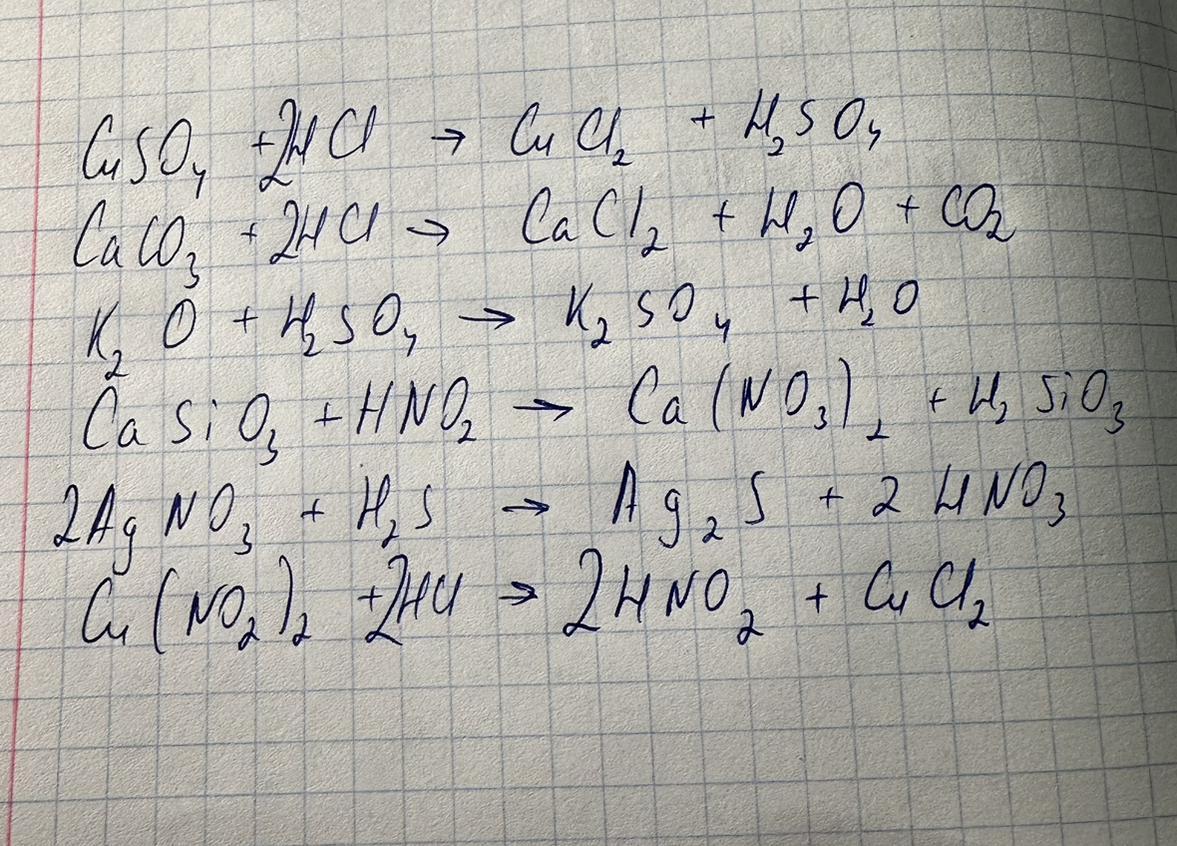 CuSO₄ + 2HCl → CuCl₂ + H₂SO₄
CaCO₃ + 2HCl → CaCl₂ + H₂O + CO₂
K₂O + H₂SO₄ → K₂SO₄ + H₂O
CaSiO₃ + HNO₂ → Ca(NO₃)₂ + H₂SiO₃
2AgNO₃ + H₂S → Ag₂S + 2HNO₃
Cu(NO₂)₂ + 2HCl → 2HNO₂ + CuCl₂